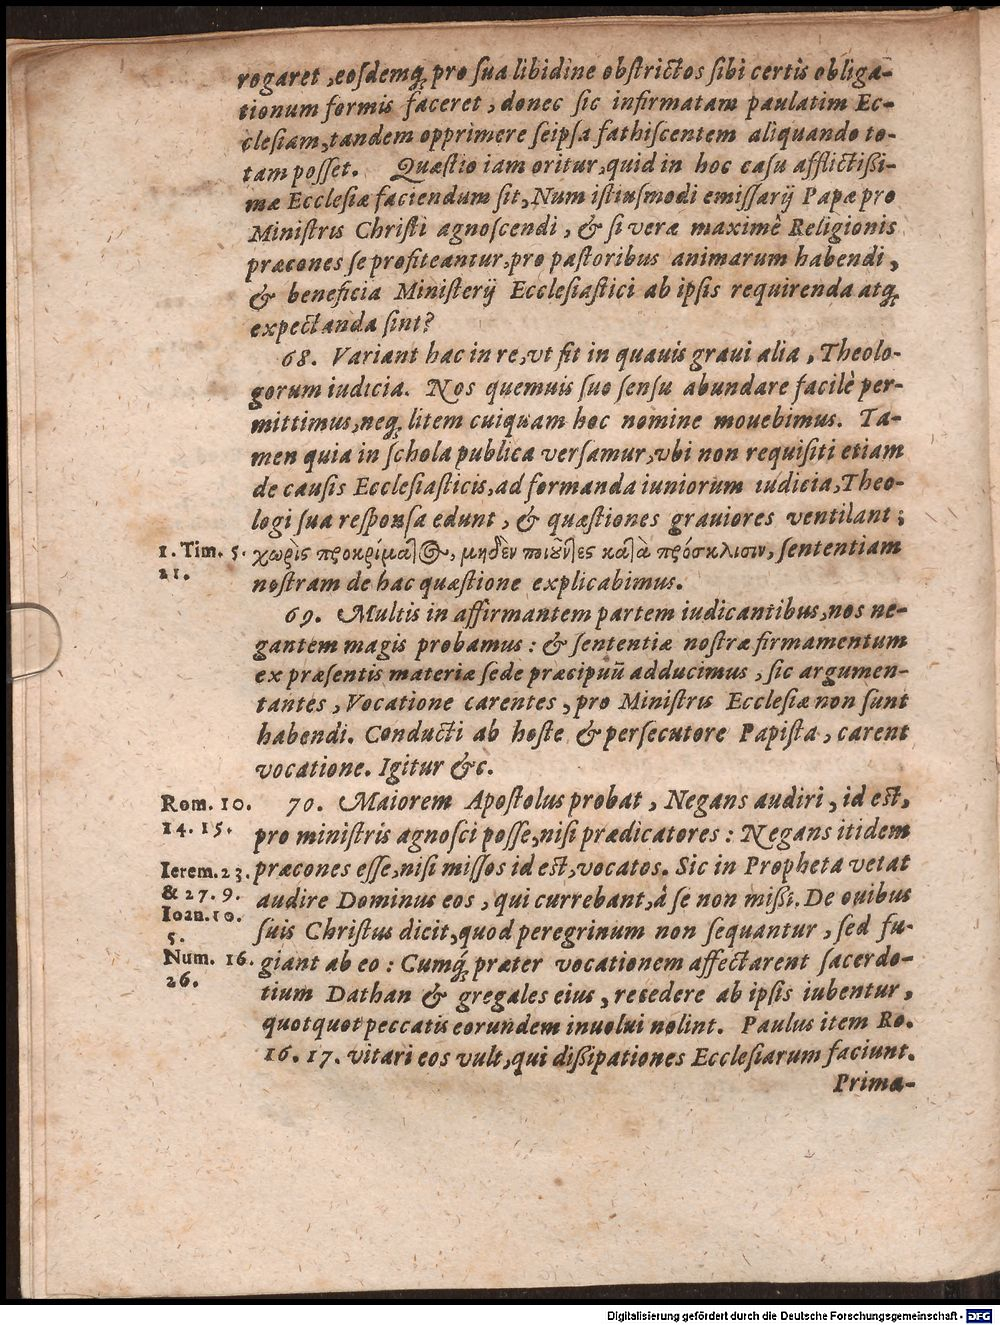 rogaret, eosdemq́ꝫ pro sua libidine obstrictos sibi certis obliga-
tionum formis faceret, donec sic infirmatam paulatim Ec-
clesiam, tandem opprimere seipsa fathiscentem aliquando to-
tam posset. Quæstio iam oritur, quid in hoc casu afflictißi-
mæ Ecclesiæ faciendum sit, Num istiusmodi emissarij Papæ pro
Ministris Christi agnoscendi, & si veræ maximè Religionis
præcones se profiteantur, pro pastoribus animarum habendi,
& beneficia Ministerij Ecclesiastici ab ipsis requirenda atqꝫ
expectanda sint?
68. Variant hac in re, vt fit in quauis graui alia, Theolo-
gorum iudicia. Nos quemuis suo sensu abundare facilè per-
mittimus, neqꝫ litem cuiquam hoc nomine mouebimus. Ta-
men quia in schola publica versamur, vbi non requisiti etiam
de causis Ecclesiasticis, ad formanda iuniorum iudicia, Theo-
logi sua responsa edunt, & quæstiones grauiores ventilant;
1. Tim. 5. χωρὶς προκρίματος, μηδὲν ποιοῦντες κατὰ πρόσκλισιν, sententiam
21. nostram de hac quæstione explicabimus.
69. Multis in affirmantem partem iudicantibus, nos ne-
gantem magis probamus: & sententiæ nostræ firmamentum
ex præsentis materiæ sede præcipuũ adducimus, sic argumen-
tantes, Vocatione carentes, pro Ministris Ecclesiæ non sunt
habendi. Conducti ab hoste & persecutore Papista, carent
vocatione. Igitur &c.
Rom. 10. 70. Maiorem Apostolus probat, Negans audiri, id est,
14. 15. pro ministris agnosci posse, nisi prædicatores: Negans itidem
Ierem. 23. præcones esse, nisi missos id est, vocatos. Sic in Propheta vetat
& 27. 9. audire Dominus eos, qui currebant, à se non mißi. De ouibus
Ioan. 10.
5. suis Christus dicit, quod peregrinum non sequantur, sed fu-
Num. 16. giant ab eo: Cumq́ꝫ præter vocationem affectarent sacerdo-
26. tium Dathan & gregales eius, recedere ab ipsis iubentur,
quotquot peccatis eorundem inuolui nolint. Paulus item Ro.
16. 17. vitari eos vult, qui dißipationes Ecclesiarum faciunt.
Prima-
Digitalisierung gefördert durch die Deutsche Forschungsgemeinschaft - DFG